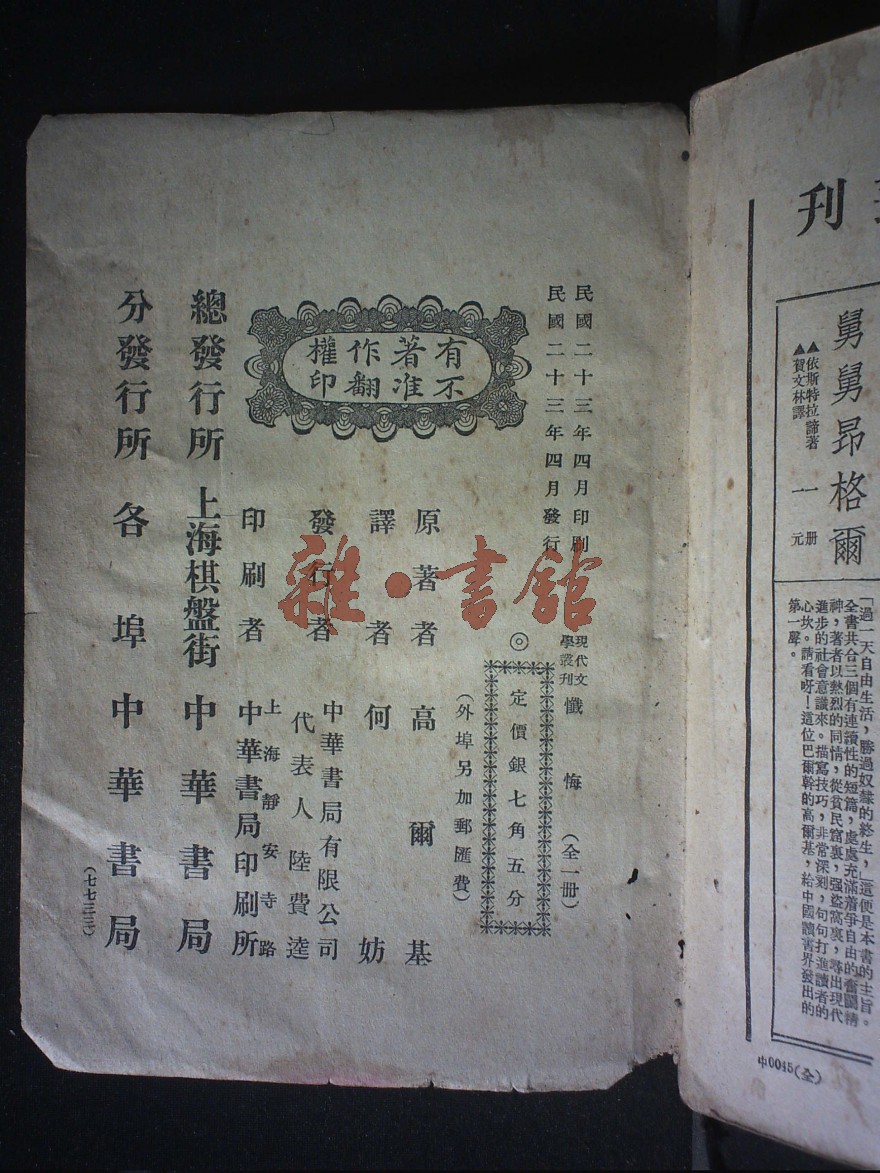 刊
舅舅昂格爾
▲依斯特拉諦著
▲賀文林譯
一册
一元
「過一天自由生活，勝過奴隸的終生，」這便是本書的主旨。
全書共合三個有連讀性的短篇，處處充滿着爭自由的奮鬭精
神，著者以熱烈的同情，從貧民窟裏，强盜窩裏，尋出現代
進步的社會意識來。描寫技巧，非常深刻，句句打進讀者的
心坎。請看呀！這位巴爾幹的高爾基，給中國讀書界發出的
第一聲。
中0045(全)
民國二十三年四月印刷
民國二十三年四月發行
現代文學叢刊 懺悔 （全一册）
◎定價銀七角五分
（外埠另加郵匯費）
有著作權
不准翻印
原著者 高爾基
譯者 何妨
發行者 中華書局有限公司
代表人 陸費逵
印刷者 上海靜安寺路
中華書局印刷所
總發行所 上海棋盤街 中華書局
分發行所 各埠 中華書局
（七七三三）
雜·書館